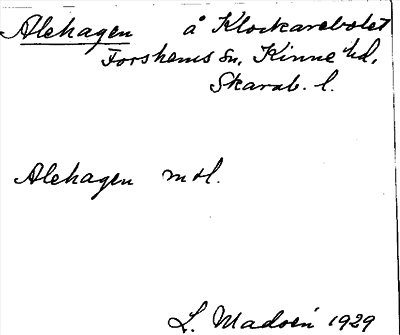 Alehagen å Klockarebolet
Forshems sn, Kinne hd,
Skarab. l.
Alehagen m sl.
L. Madsén 1929